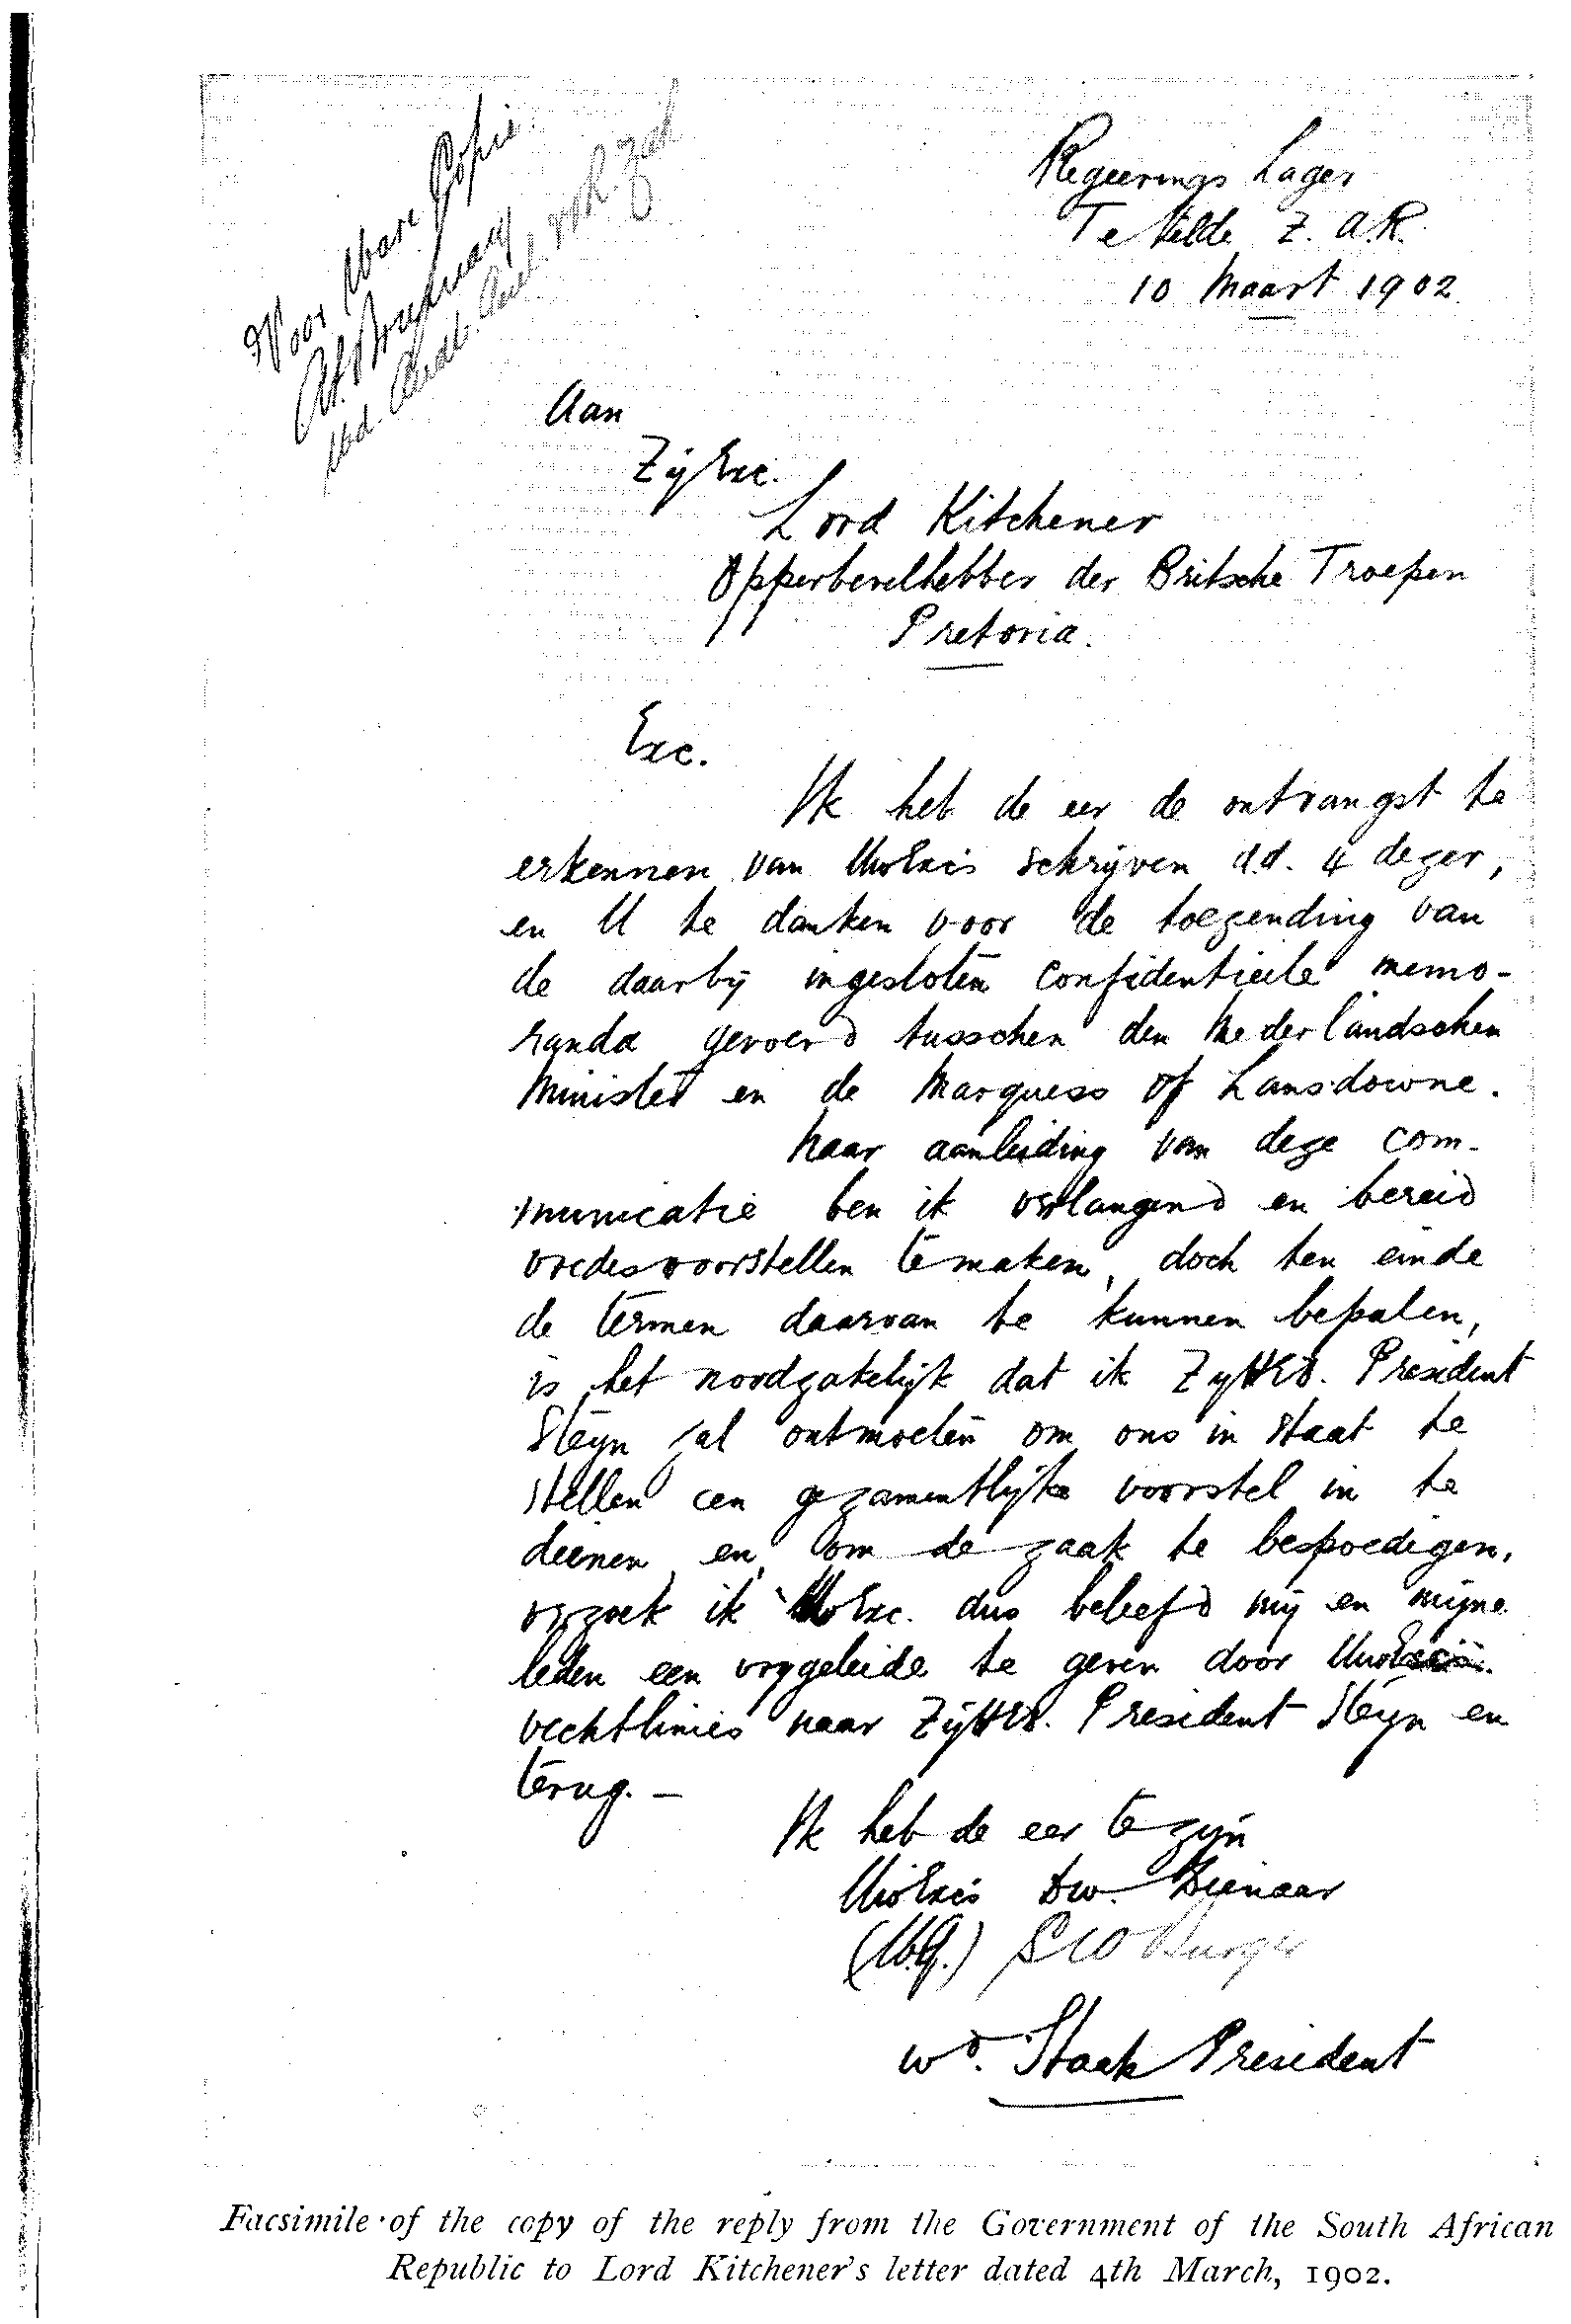 Voor Ware Copie
Regeerings Lager
Te Velde Z. A. R.
10 Maart 1902
Aan
ZijExc.
Lord Kitchener
Opperbevelhebber der Britsche Troepen
Pretoria.
Exc.
Ik heb de eer de ontvangst te
erkennen van UwExcs schrijven d.d. 4 dezer,
en U te danken voor de toezending van
de daarbij ingesloten confidentieele memo-
randa gevoerd tusschen den Nederlandschen
Minister en de Marquess of Lansdowne.
Naar aanleiding van deze com-
municatie ben ik verlangend en bereid
vredesvoorstellen te maken, doch ten einde
de termen daarvan te kunnen bepalen,
is het noodzakelijk dat ik ZijHEd. President
Steyn zal ontmoeten om ons in staat te
stellen een gezamentlijke voorstel in te
dienen en, om de zaak te bespoedigen,
verzoek ik UwExc. dus beleefd mij en mijne
leden een vrijgeleide te geven door Uw
vechtlinies naar ZijHEd. President Steyn en
terug. —
Ik heb de eer te zijn
UwExcs Dw. Dienaar
(W.G.) S W Burger
wd. Staats President
Facsimile of the copy of the reply from the Government of the South African
Republic to Lord Kitchener's letter dated 4th March, 1902.